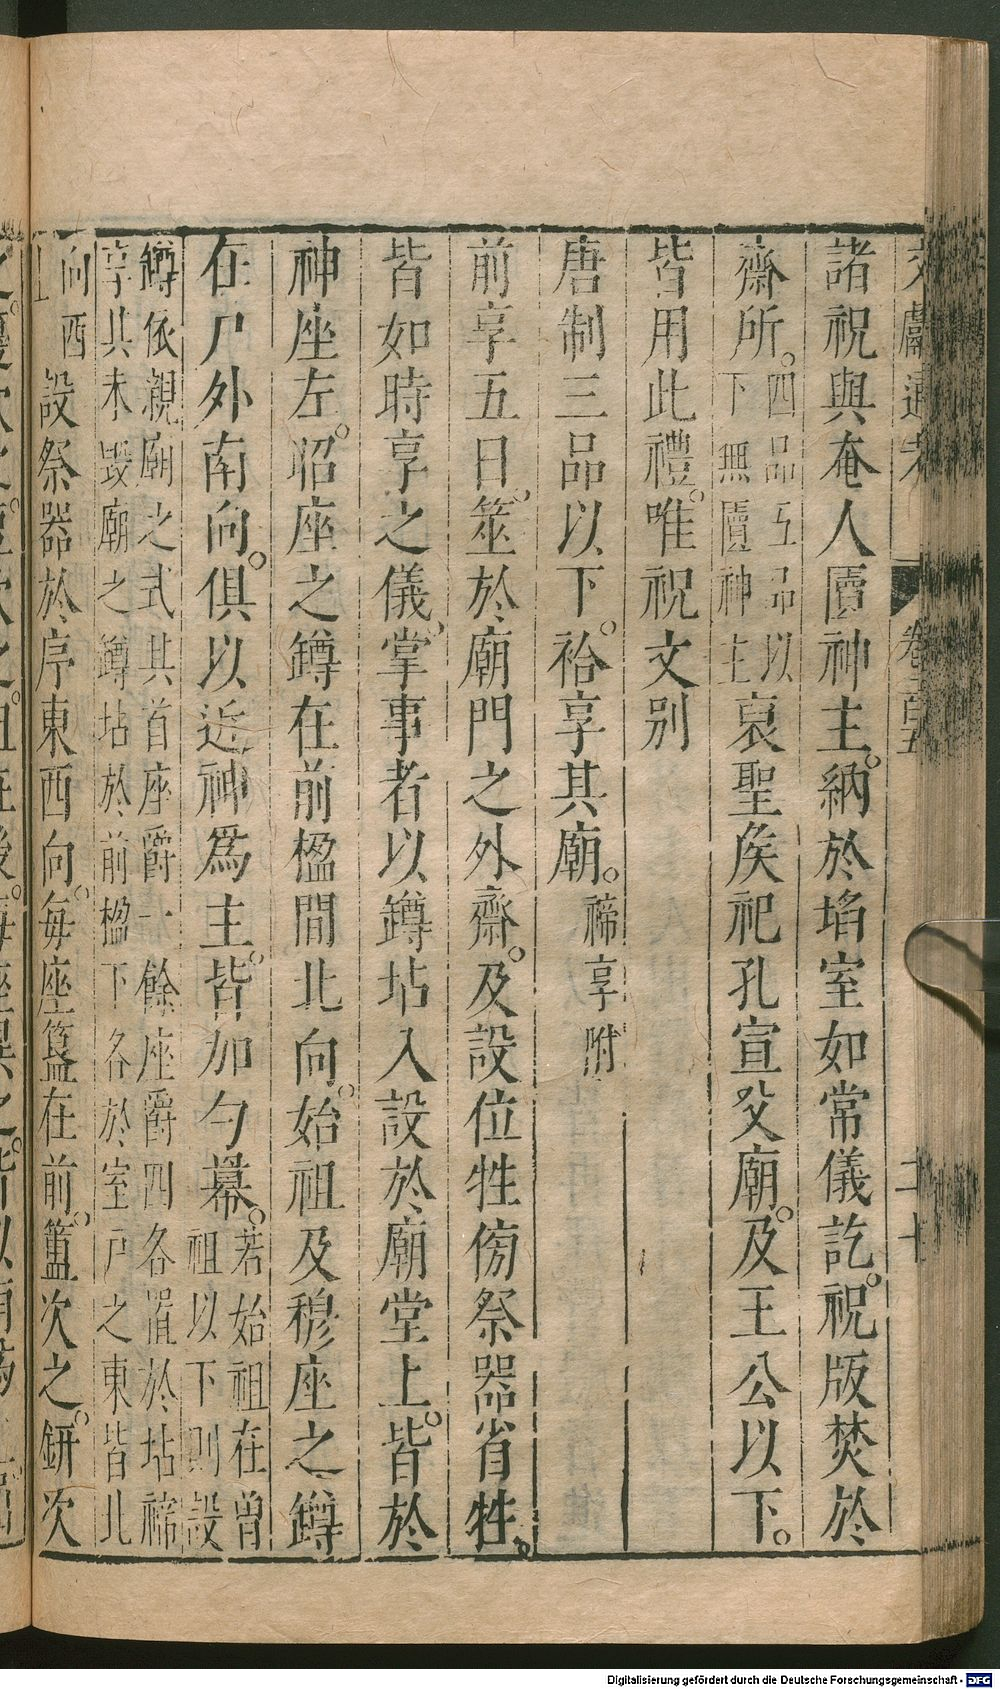 文獻通考 卷一百五 二十
諸祝與奄人匵神主。納於埳室如常儀訖。祝版焚於
齋所。四品五品以下無匵神主哀聖侯祀孔宣父廟。及王公以下。
皆用此禮。唯祝文别
唐制三品以下。祫享其廟。禘享附
前享五日。筮於廟門之外齋。及設位牲傍祭器省牲。
皆如時享之儀。掌事者以罇坫入設於廟堂上。皆於
神座左。昭座之罇在前楹間北向。始祖及穆座之罇
在戸外南向。俱以近神爲主。皆加勺幕。若始祖在曾祖以下則設
罇依親廟之式其首座爵一餘座爵四各置於坫禘享其未毀廟之罇坫於前楹下各於室戸之東皆北
向西上設祭器於序東西向。每座簋在前。簠次之。鈃次